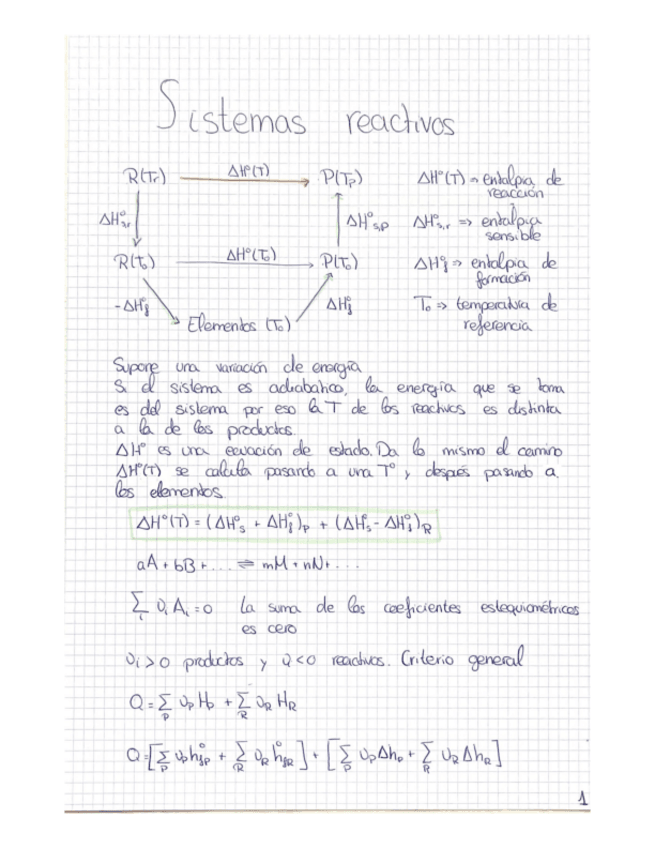 Sistemas reactivos
R(Tr) ΔHº(T) P(Tp) ΔHº(T) → entalpia de
reacción
ΔHºs,r ΔHºs,p ΔHºs,r => entalpia
sensible
R(To) ΔHº(To) P(To) ΔHºf => entalpia de
formación
-ΔHºf Elementos (To) ΔHºf To => temperatura de
referencia
Supone una variación de energía
Si el sistema es adiabático, la energía que se toma
es del sistema por eso la T de los reactivos es distinta
a la de los productos.
ΔHº es una ecuación de estado. Da lo mismo el camino
ΔHº(T) se calcula pasando a una Tº y después pasando a
los elementos.
ΔHº(T) = (ΔHºs + ΔHºf)p + (ΔHºs - ΔHºf)R
aA + bB + ... ⇌ mM + nN + ...
Σi υi Ai = 0 La suma de los coeficientes estequiométricos
es cero
υi > 0 productos y υi < 0 reactivos. Criterio general
Q = Σp υp Hp + ΣR υR HR
Q = [Σp υp hºfp + ΣR υR hºfR] + [Σp υp Δhp + ΣR υR ΔhR]
1